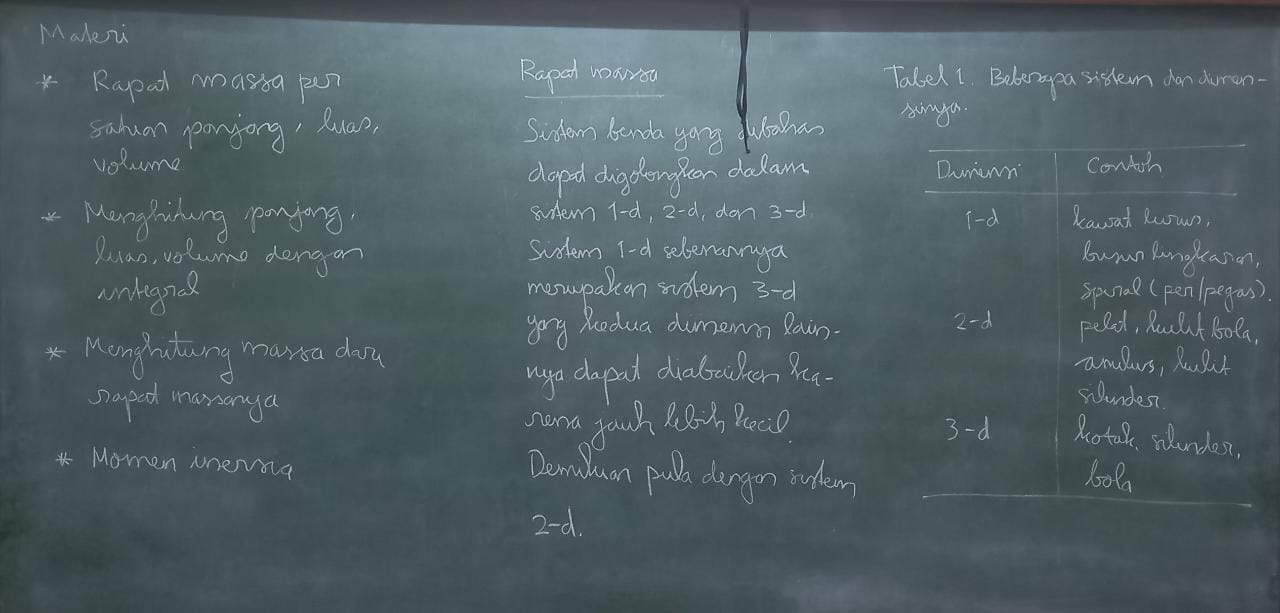 Materi
* Rapat massa per
satuan panjang, luas,
volume
* Menghitung panjang,
luas, volume dengan
integral
* Menghitung massa dari
rapat massanya
* Momen inersia
Rapat massa
Sistem benda yang dibahas
dapat digolongkan dalam
sistem 1-d, 2-d, dan 3-d.
Sistem 1-d sebenarnya
merupakan sistem 3-d
yang kedua dimensi lain-
nya dapat diabaikan ka-
rena jauh lebih kecil.
Demikian pula dengan sistem
2-d.
Tabel 1. Beberapa sistem dan dimen-
sinya.
Dimensi Contoh
1-d kawat lurus,
busur lingkaran,
spiral (per/pegas).
2-d pelat, kulit bola,
anulus, kulit
silinder.
3-d kotak, silinder,
bola